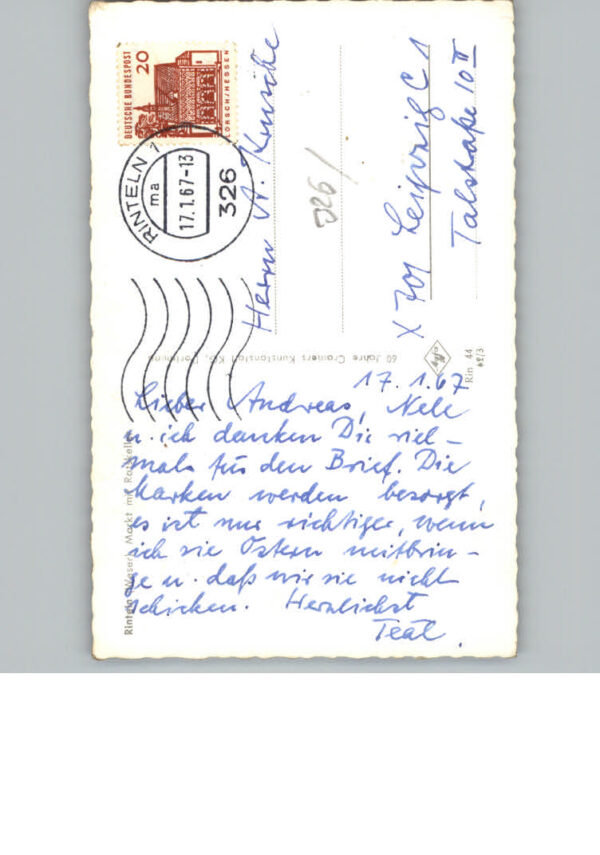 DEUTSCHE BUNDESPOST
20
LORSCH/HESSEN
RINTELN 1
ma
17.1.67-13
326
Herrn A.
326/
X 701 Leipzig C1
Talstraße 10 II
60 Jahre Cramers Kunstanstalt KG, Dortmund
Rin 44
Rinteln (Weser), Markt mit Ratskeller
17.1.67
Lieber Andreas, Nele
u. ich danken Dir viel-
mals für den Brief. Die
Marken werden besorgt,
es ist nur richtiger, wenn
ich sie Ostern mitbrin-
ge u. daß wir sie nicht
schicken. Herzlichst